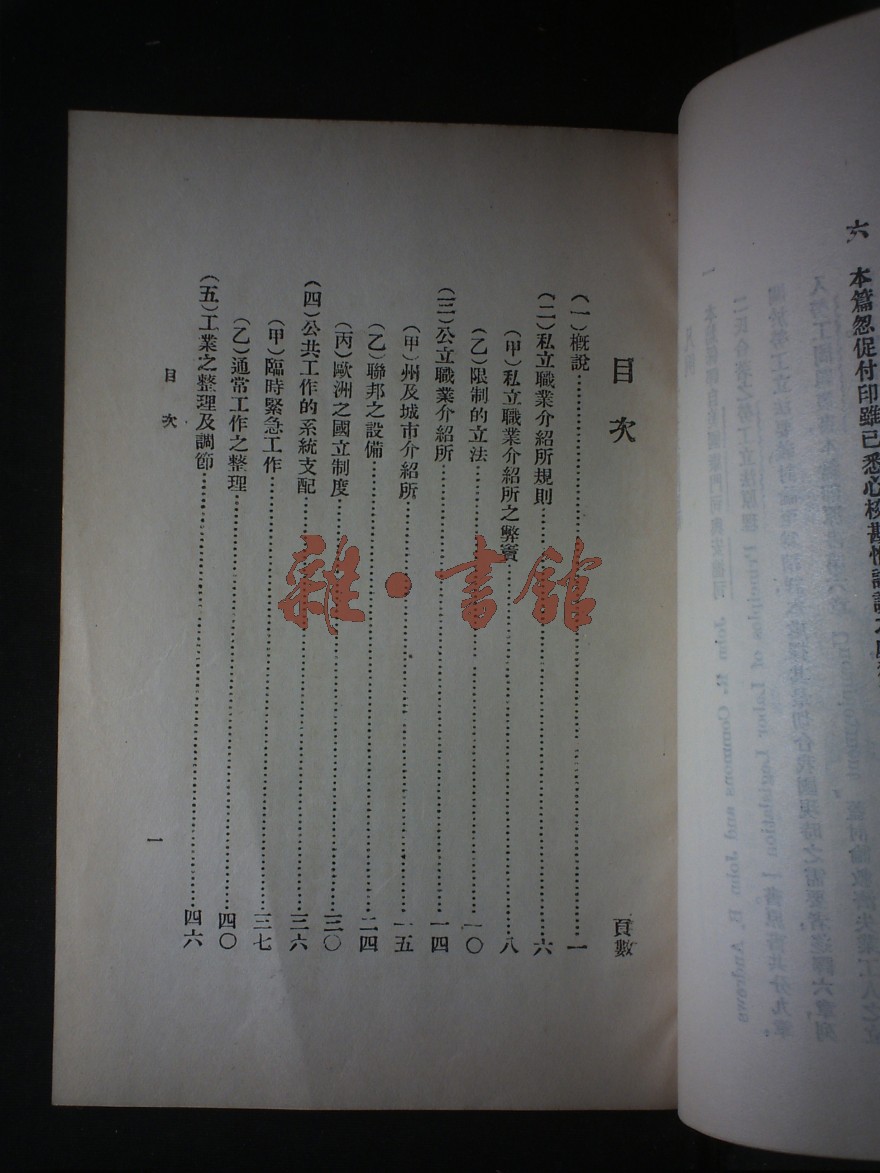 六　本篇怱促付印雖已悉心校勘惟誤
目次　頁數
(一)概說…………一
(二)私立職業介紹所規則…………六
(甲)私立職業介紹所之弊竇…………八
(乙)限制的立法…………一〇
(三)公立職業介紹所…………一四
(甲)州及城市介紹所…………一五
(乙)聯邦之設備…………二四
(丙)歐洲之國立制度…………三〇
(四)公共工作的系統支配…………三六
(甲)臨時緊急工作…………三七
(乙)通常工作之整理…………四〇
(五)工業之整理及調節…………四六
目次
一
雜·書館